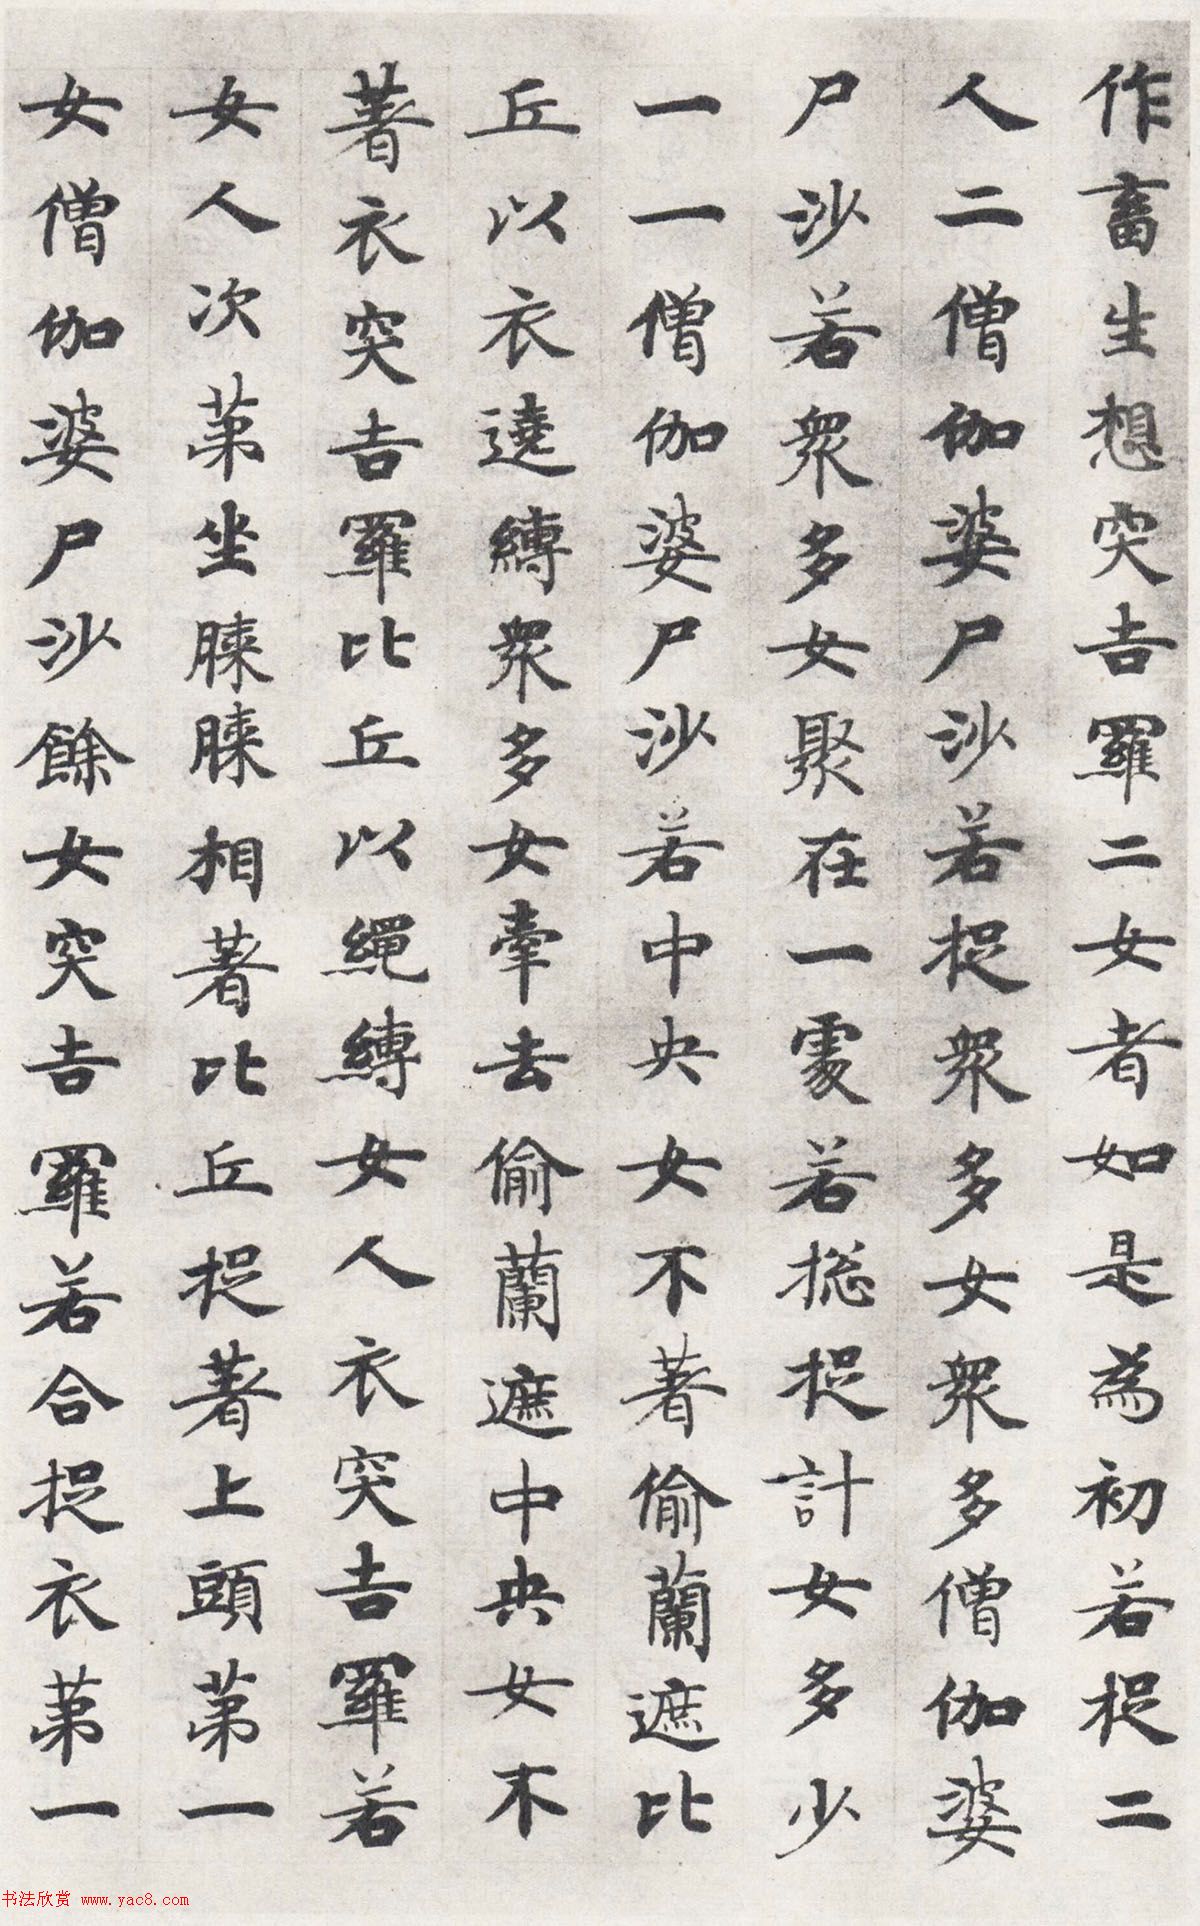 作畜生想突吉羅二女者如是為初若捉二
人二僧伽婆尸沙若捉眾多女眾多僧伽婆
尸沙若眾多女聚在一處若捴捉計女多少
一一僧伽婆尸沙若中央女不著偷蘭遮比
丘以衣遶縛眾多女牽去偷蘭遮中央女不
著衣突吉羅比丘以繩縛女人衣突吉羅若
女人次第坐膝膝相著比丘捉著上頭第一
女僧伽婆尸沙餘女突吉羅若合捉衣第一
书法欣赏 www.yac8.com